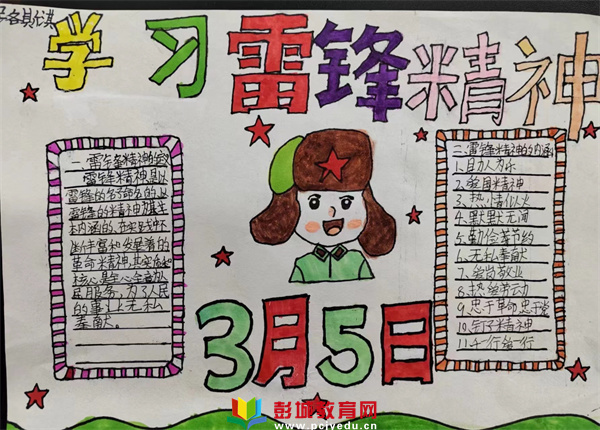 学习雷锋精神
一.雷锋精神的
雷锋精神是以
雷锋的名字命名的以
雷锋的精神为基本
内涵的,在实践中不
断丰富和发展着的
革命精神,其实质和
核心是全心全意为人
民服务,为了人民
的事业无私
奉献。
3月5日
二.雷锋精神的内涵
1.助人为乐
2.爱国精神
3.热情似火
4.默默无闻
5.勤俭节约
6.无私奉献
7.爱岗敬业
8.热爱劳动
9.忠于革命忠于党
10.钉子精神
11.干一行爱一行
彭城教育网
www.pcjyedu.cn